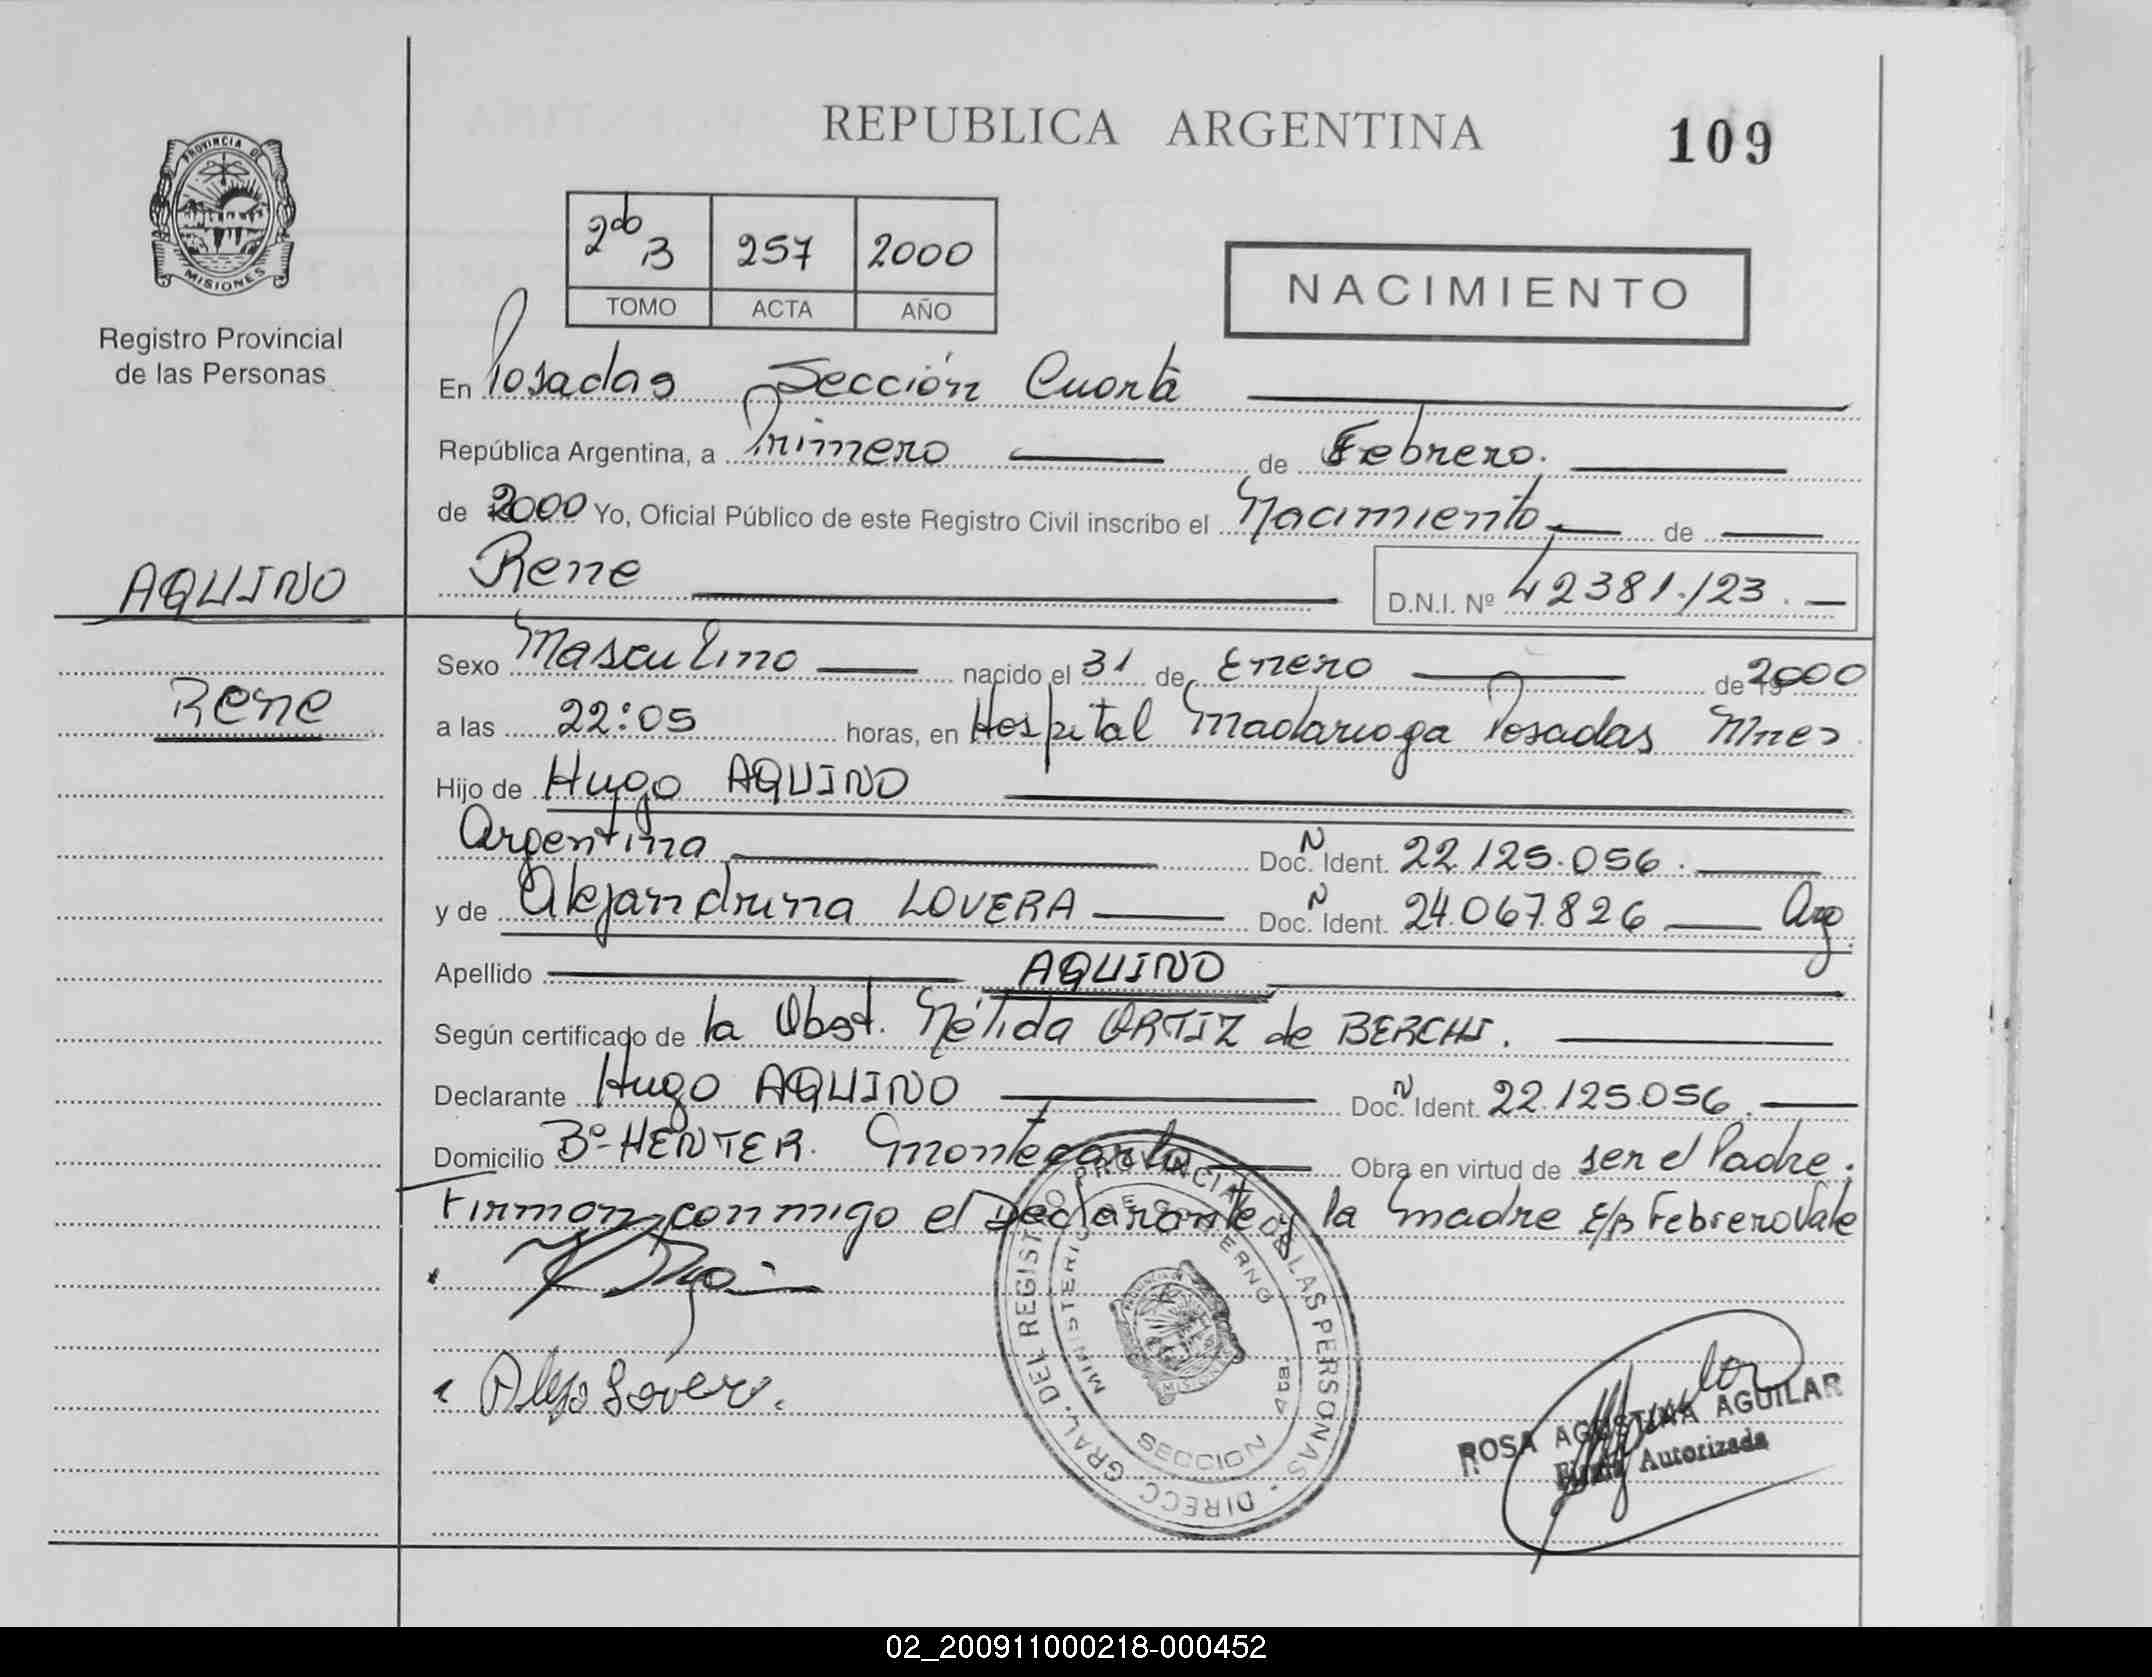 REPUBLICA ARGENTINA
109
PROVINCIA DE
MISIONES
Registro Provincial
de las Personas
2do B 257 2000
TOMO ACTA AÑO
NACIMIENTO
En Posadas Sección Cuarta
República Argentina, a Primero de Febrero.
de 2000 Yo, Oficial Público de este Registro Civil inscribo el Nacimiento de
AQUINO
Rene
D.N.I. Nº 42381./23.
Rene
Sexo Masculino nacido el 31 de Enero de 2000
a las 22:05 horas, en Hospital Madariaga Posadas Mnes
Hijo de Hugo AQUINO
Argentina Doc. N Ident. 22.125.056.
y de Alejandrina LOVERA Doc. N Ident. 24.067.826 Arg.
Apellido AQUINO
Según certificado de la Obst. Nélida ORTIZ de BERCHI.
Declarante Hugo AQUINO Doc. N Ident. 22.125.056.
Domicilio Bº-HENTER. Montecarlo Obra en virtud de ser el Padre.
Firman conmigo el Declarante y la madre E/P Febrero Vale
DIRECC. GRAL. DEL REGISTRO PROVINCIAL DE LAS PERSONAS
MINISTERIO DE GOBIERNO
SECCION 4ta
ROSA AGUSTINA AGUILAR
Firma Autorizada
02_200911000218-000452